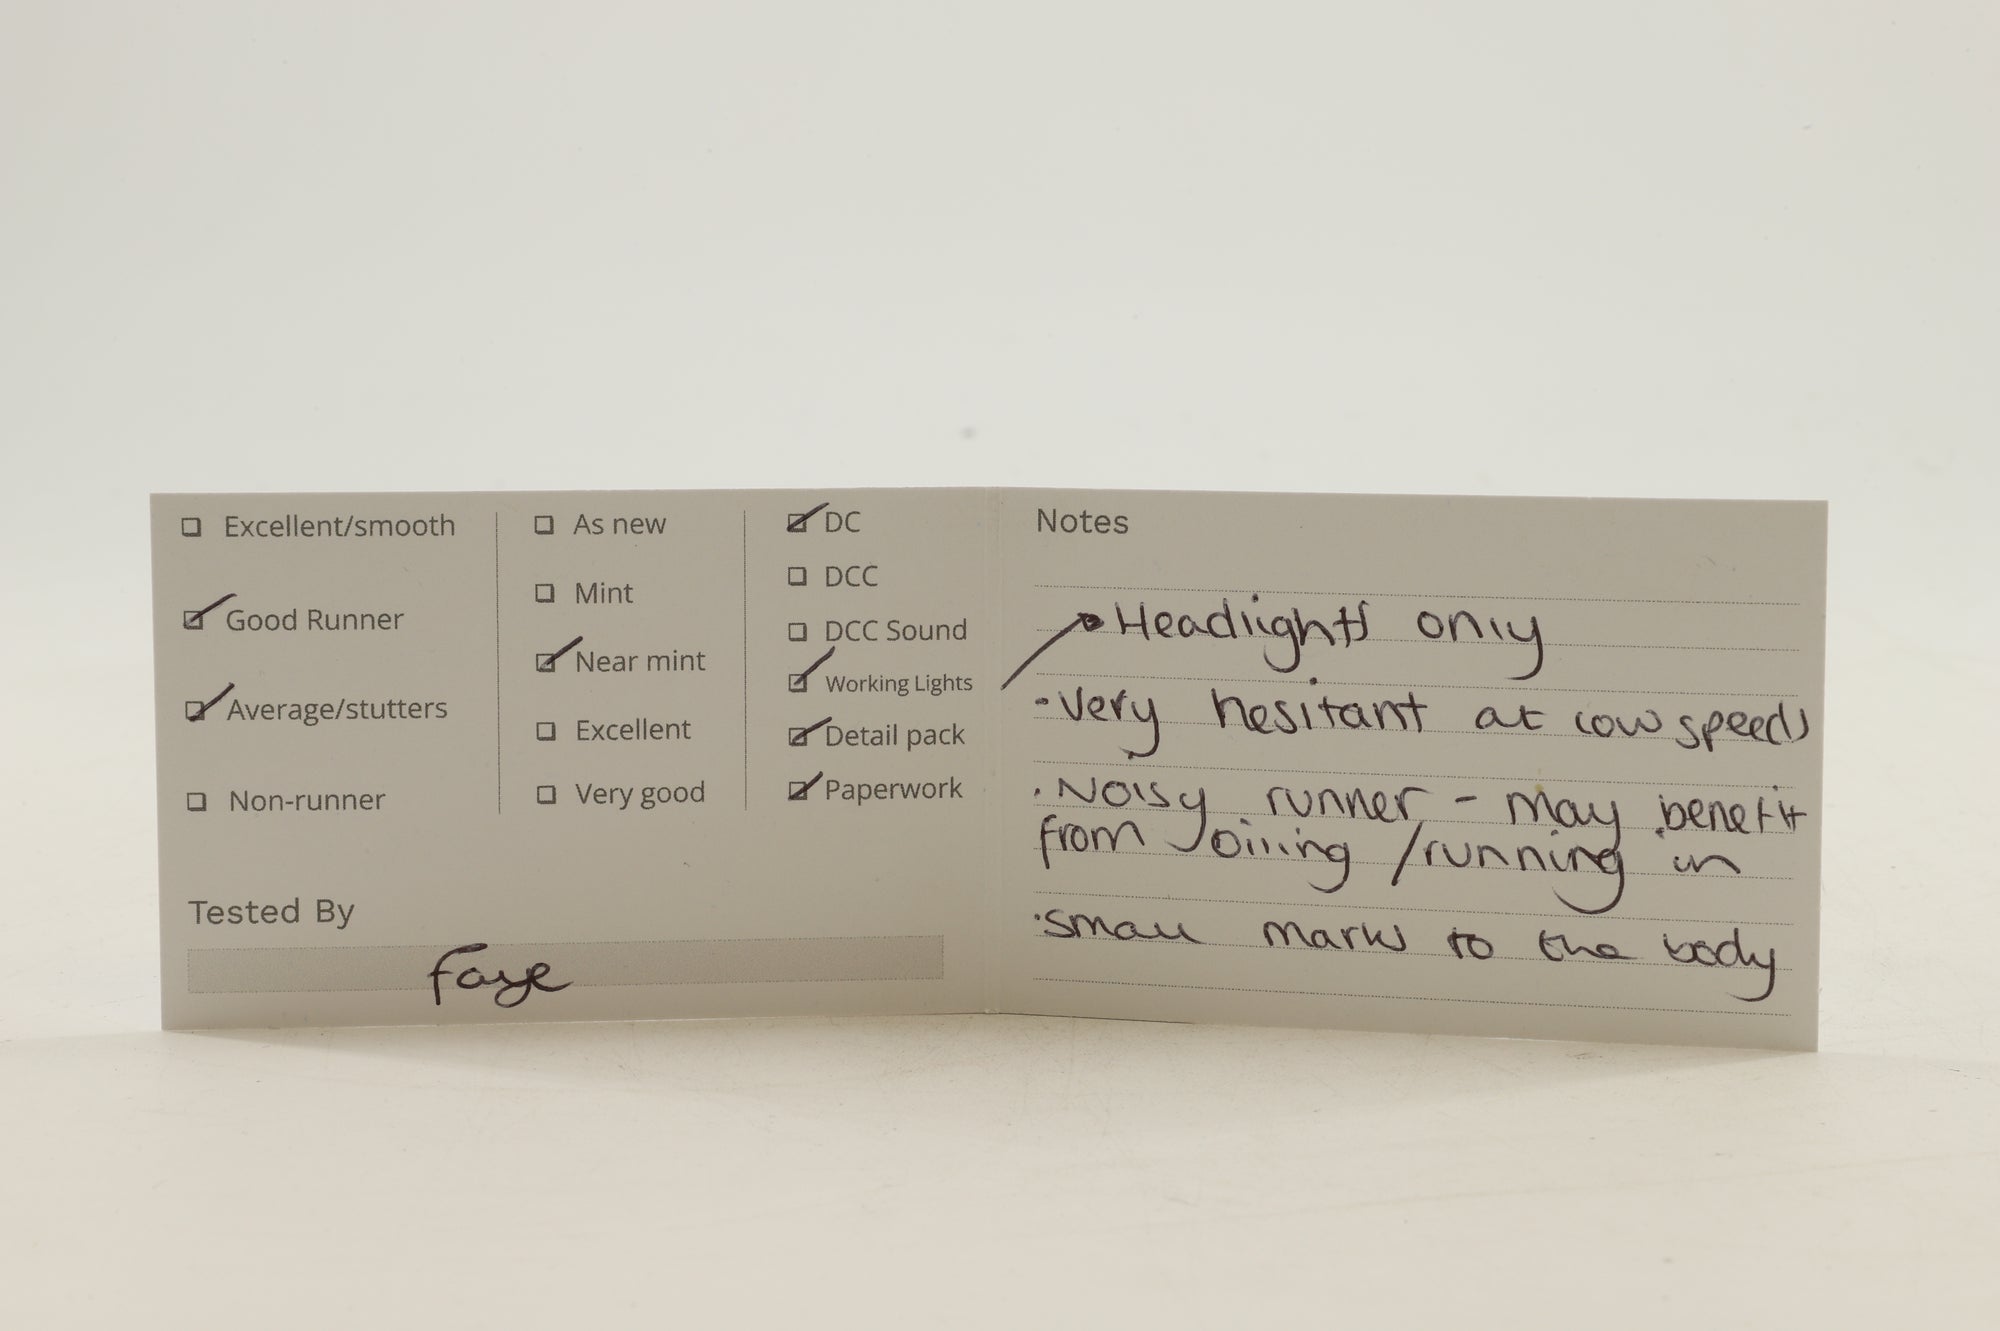 Excellent/smooth
Good Runner
Average/stutters
Non-runner
As new
Mint
Near mint
Excellent
Very good
DC
DCC
DCC Sound
Working Lights
Detail pack
Paperwork
Tested By
Faye
Notes
Headlights only
-Very hesitant at low speeds
·Noisy runner - may benefit
from oiling /running in
·Small marks to the body